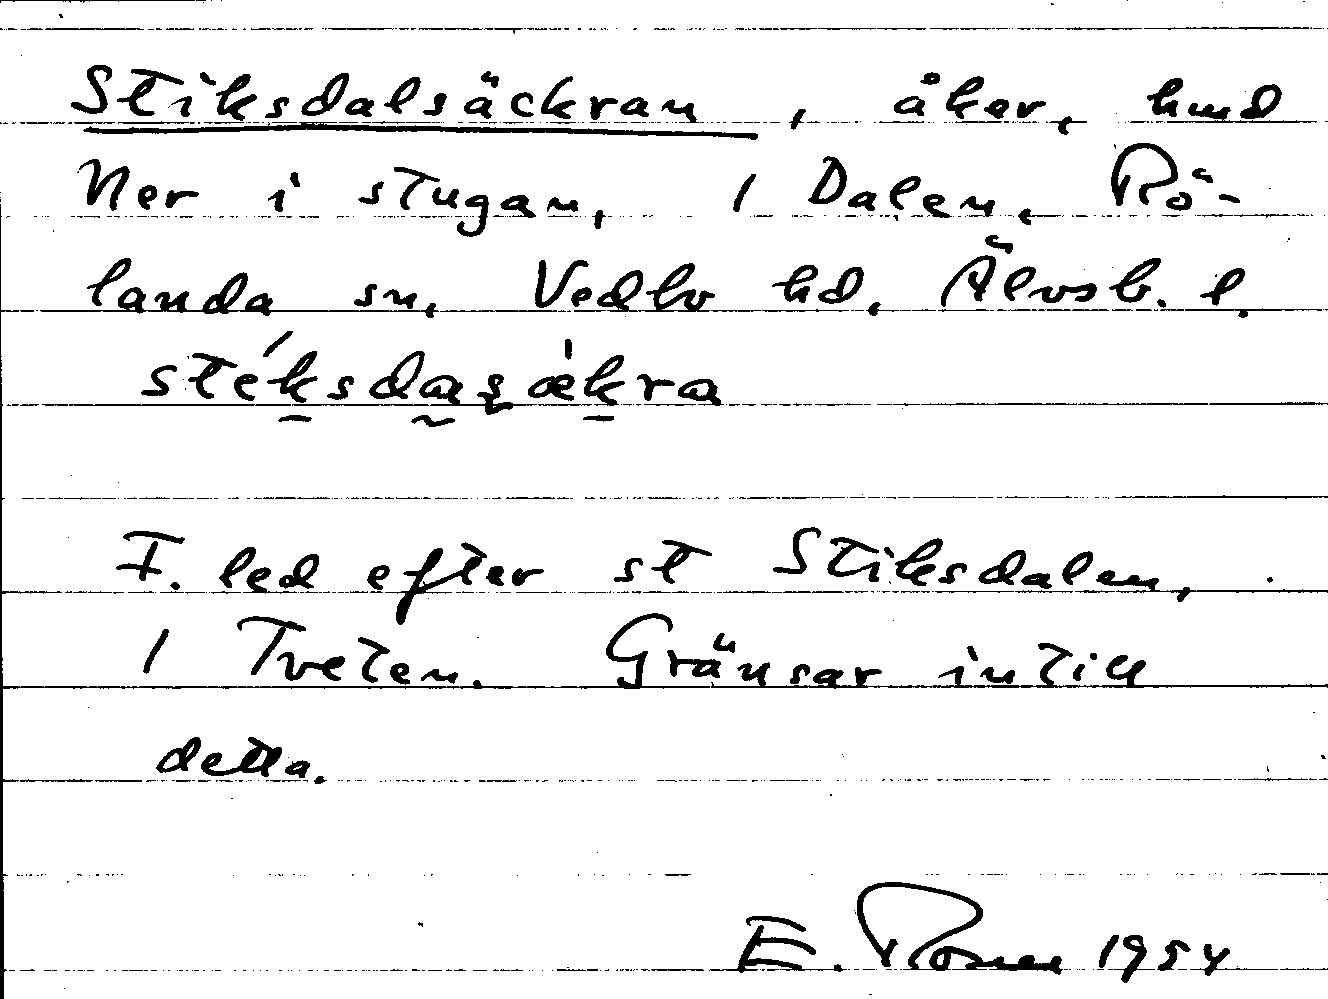 Stiksdalsäckran, åker, hmd
Ner i stugan, 1 Dalen, Rö-
landa sn, Vedbo hd, Älvsb. l.
stéksdasækra
F. led efter st Stiksdalen,
1 Tveten. Gränsar intill
detta.
E. Rosner 1954